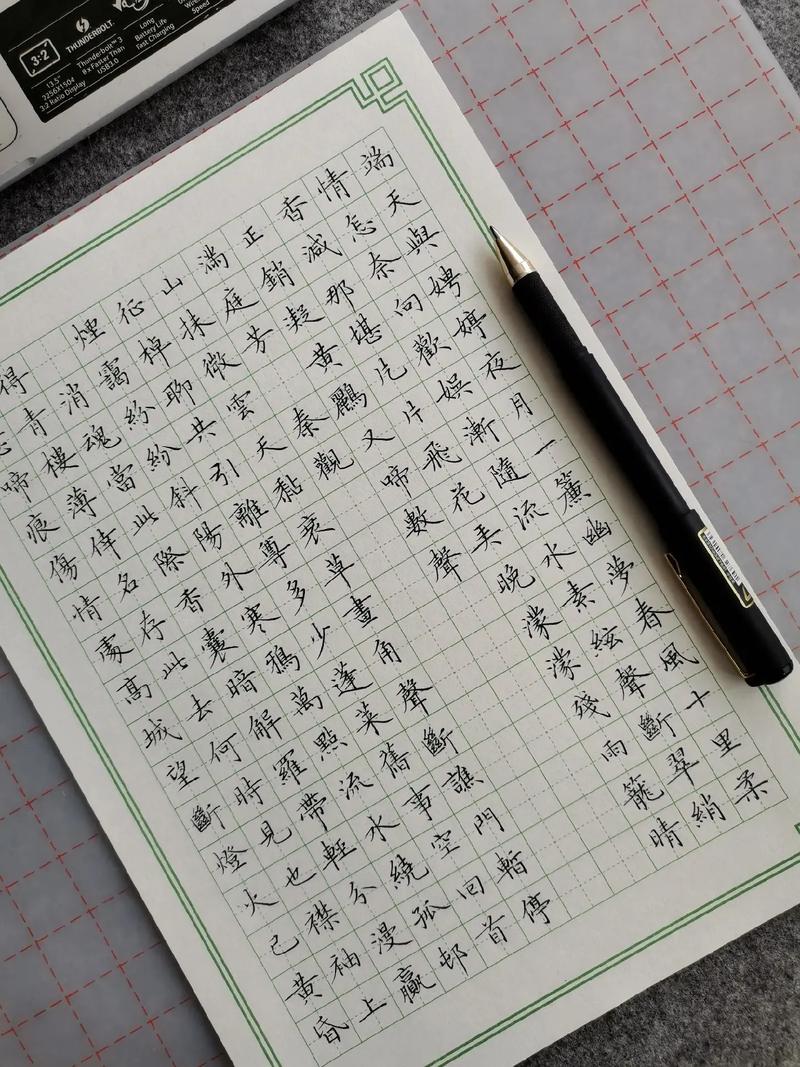 3:2
13.5"
2256X1504
3:2 Ratio Display
THUNDERBOLT.
Thunderbolt™ 3
8x Faster Than
USB3.0
Long
Battery Life
Fast Charging
端天與娉婷夜月一簾幽夢春風十里柔
情怎奈向歡娛漸隨流水素絃聲斷翠綃
香減那堪片片飛花弄晚濛濛殘雨籠晴
正銷凝黃鸝又啼數聲
滿庭芳 秦觀
山抹微雲天黏衰草畫角聲斷譙門暫停
征棹聊共引離尊多少蓬萊舊事空回首
煙靄紛紛斜陽外寒鴉萬點流水繞孤邨
消魂當此際香囊暗解羅帶輕分漫贏
得青樓薄倖名存此去何時見也襟袖上
啼痕傷情處高城望斷燈火已黃昏